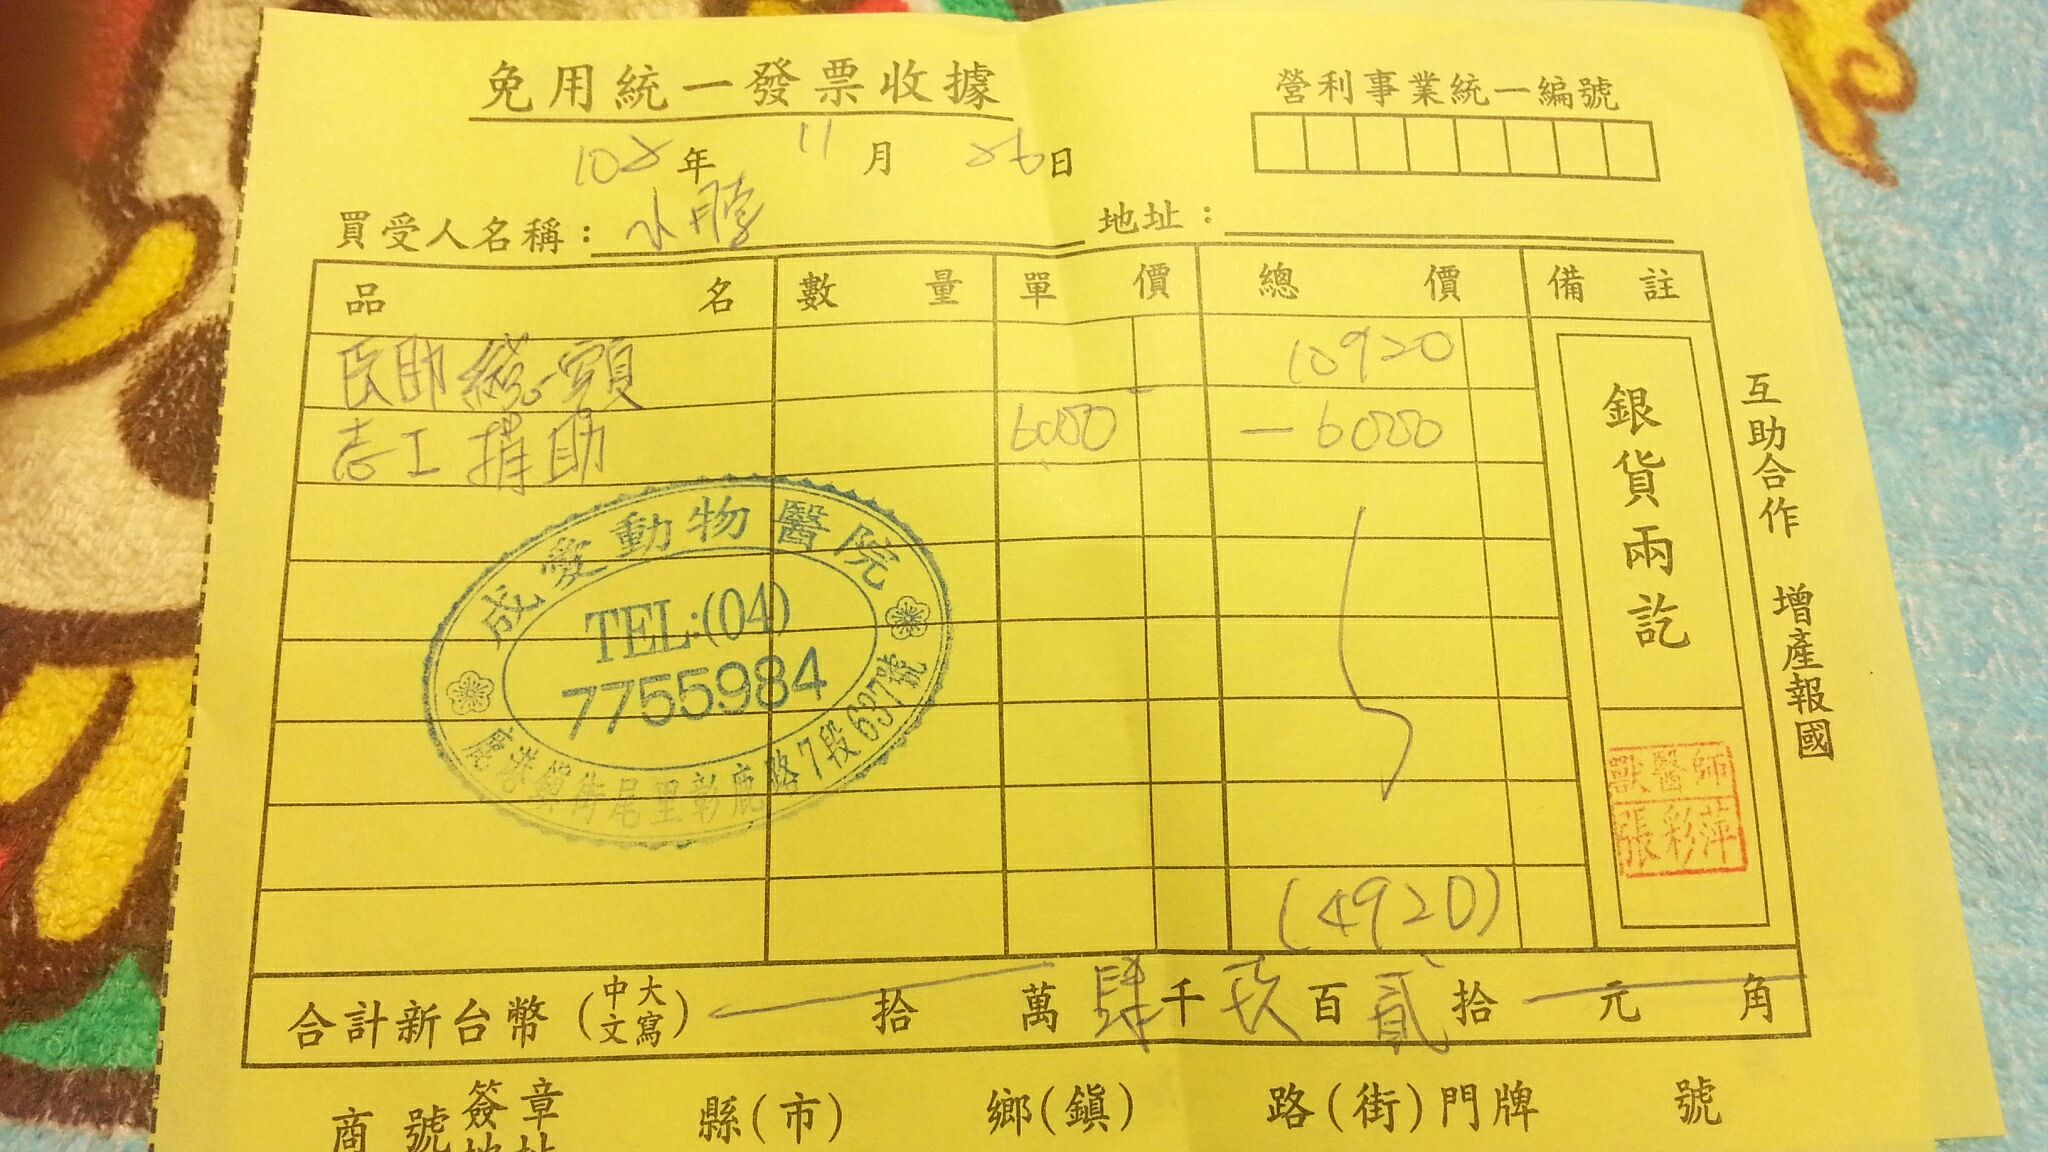 免用統一發票收據
營利事業統一編號
年 11 月 26日
買受人名稱：
地址：
品名 數量 單價 總價 備註
總額 10920
志工捐助 6000 －6000
(4920)
銀貨兩訖
獸醫師
張彩萍
互助合作 增產報國
成愛動物醫院
TEL:(04)
7755984
鹿港鎮街尾里彰鹿路7段637號
合計新台幣(中文大寫) 拾 萬 肆千玖百貳拾 元 角
商號簽章 縣(市) 鄉(鎮) 路(街)門牌 號